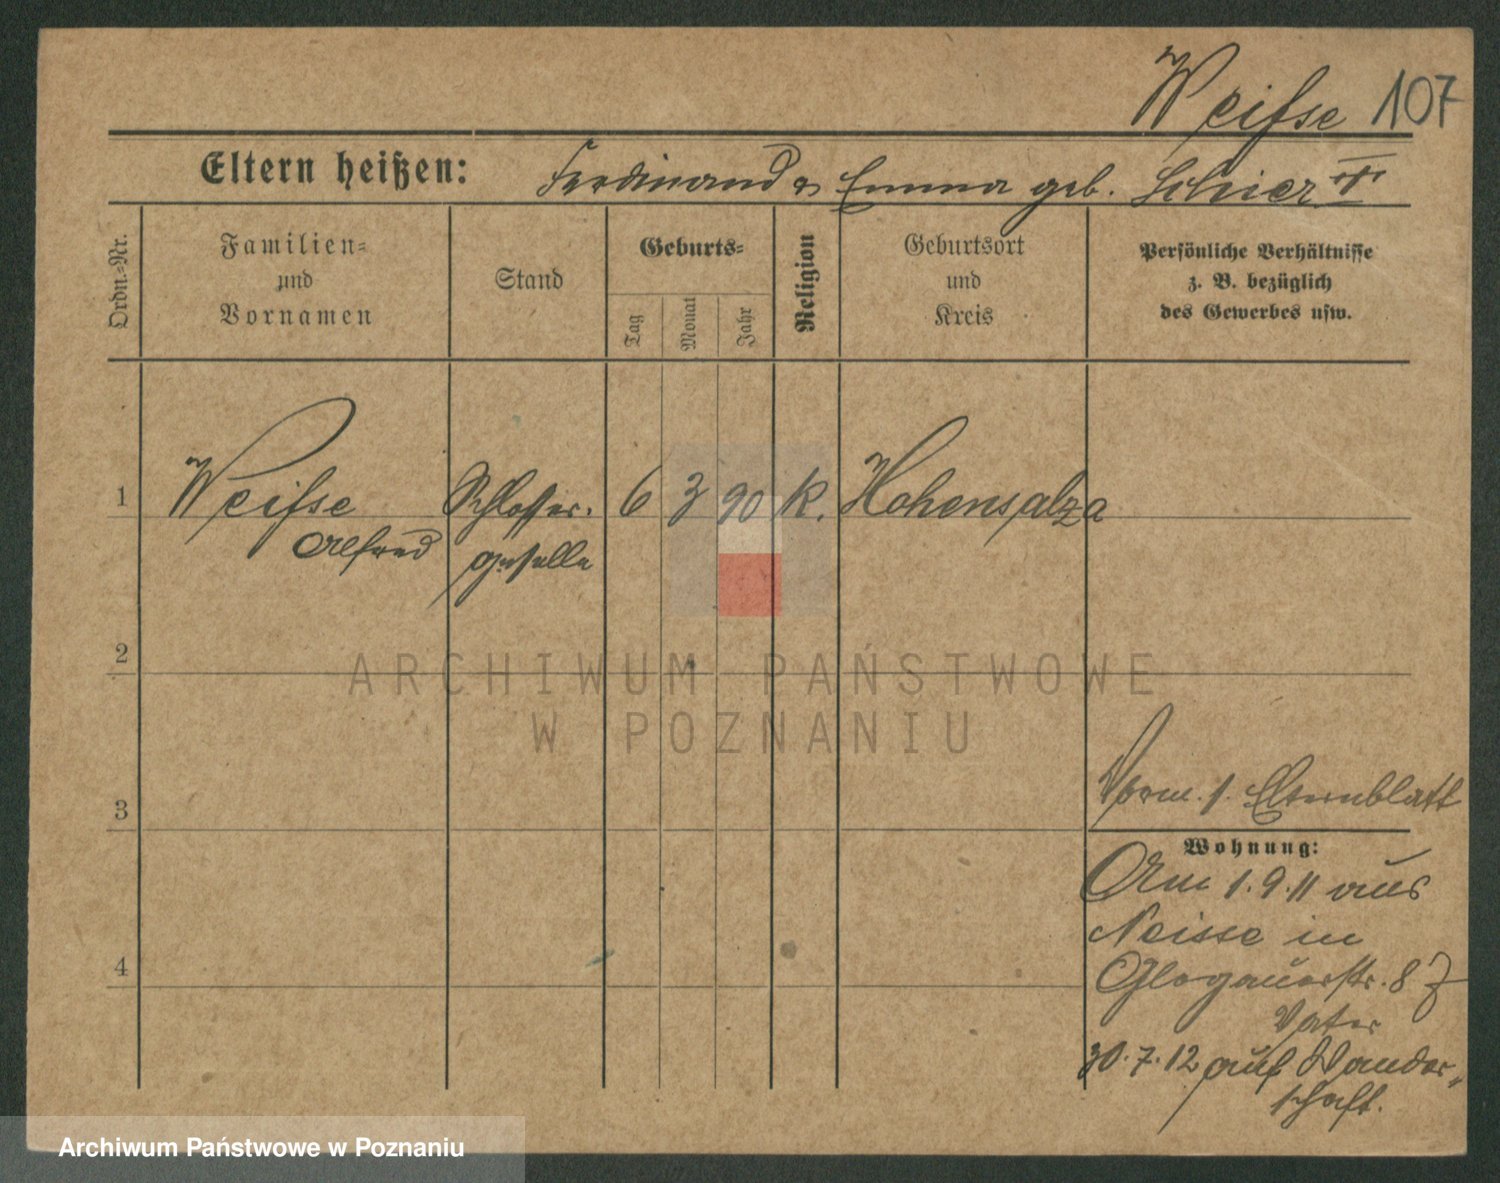 Weiſse 107
Eltern heißen: Ferdinand u Emma geb. Schier
Ordn.-Nr.
Familien-
und
Vornamen
Stand
Geburts-
Tag
Monat
Jahr
Religion
Geburtsort
und
Kreis
Perſönliche Verhältniſſe
z. B. bezüglich
des Gewerbes uſw.
1 Weiſse Schlosser- 6 3 90 k. Hohensalza
Alfred geselle
2
ARCHIWUM PAŃSTWOWE
W POZNANIU
3
Vorm. s. Elternblatt
Wohnung:
Am 1.9.11 aus
Neisse in
Glogauerstr. 87
Vater
4
30.7.12 auf Wander-
schaft.
Archiwum Państwowe w Poznaniu